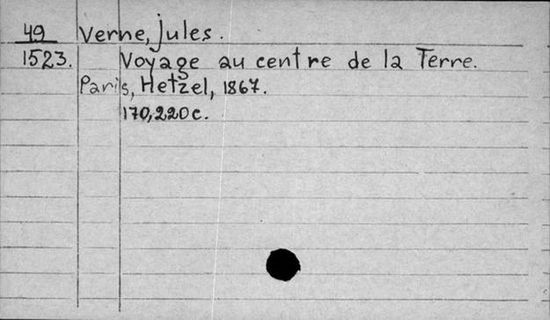 49 Verne, Jules.
1523. Voyage au centre de la Terre.
Paris, Hetzel, 1867.
170,220c.